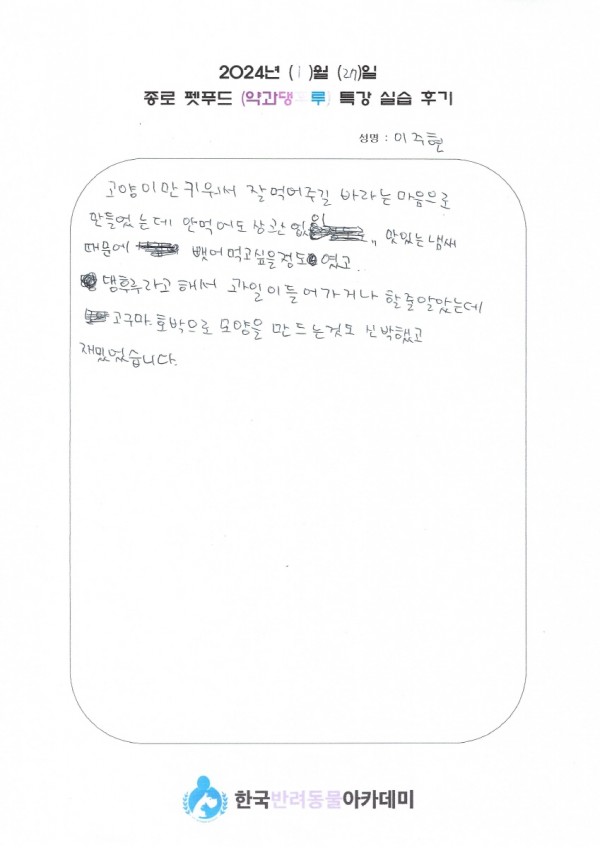 2024년 (1)월 (27)일
종로 펫푸드 (약과댕 루) 특강 실습 후기
성명 : 이주현
고양이만 키워서 잘먹어주길 바라는 마음으로
만들었는데 안먹어도 상관없이 ,, 맛있는냄새
때문에 뺏어먹고싶을정도였고.
댕후루라고 해서 과일이들어가거나 할줄알았는데
고구마.호박으로 모양을 만드는것도 신박했고
재밌었습니다.
한국반려동물아카데미